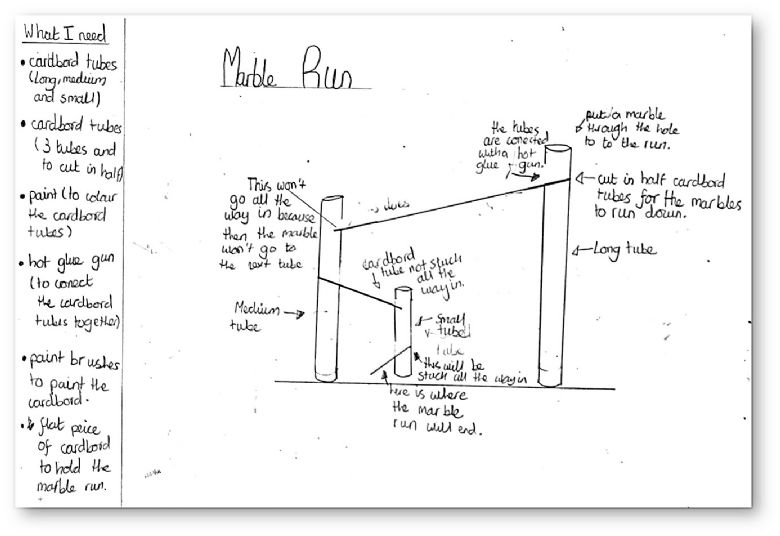 What I need
• cardbord tubes
(long, medium
and small)
• cardbord tubes
(3 tubes and
to cut in half)
• paint (to colour
the cardbord
tubes)
• hot glue gun
(to conect
the cardbord
tubes together)
• paint brushes
to paint the
cardbord.
• flat peice
of cardbord
to hold the
marble run.
Marble Run
the tubes
are conected
with a hot
glue gun.
put a marble
through the hole
to to the run.
cut in half cardbord
tubes for the marbles
to run down.
Long tube
This won't
go all the
way in because
then the marble
won't go to
the next tube
cardbord
tube not stuck
all the
way in.
Medium
tube
Small
tube
tube
this will be
stuck all the way in
here is where
the marble
run will end.